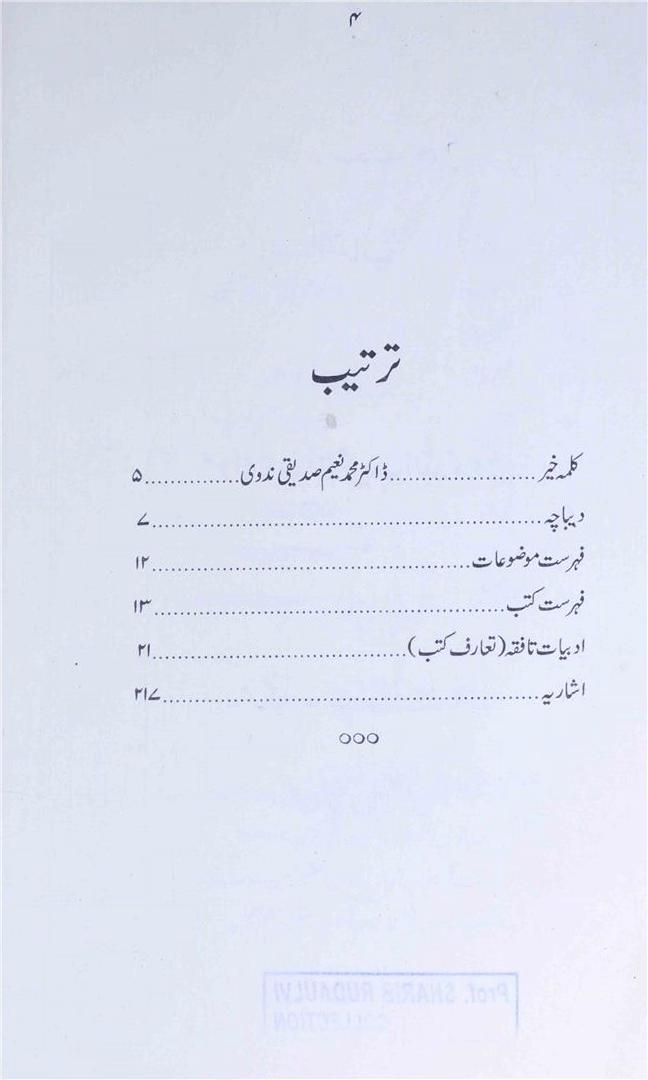 ۴
ترتیب
کلمہ خیر......................ڈاکٹر محمد نعیم صدیقی ندوی..............۵
دیباچہ..............................................................۷
فہرست موضوعات................................................۱۲
فہرست کتب.....................................................۱۳
ادبیات تا فقہ (تعارف کتب)......................................۲۱
اشاریہ.........................................................۲۱۷
○○○
Prof. SHARIB RUDAULVI
COLLECTION